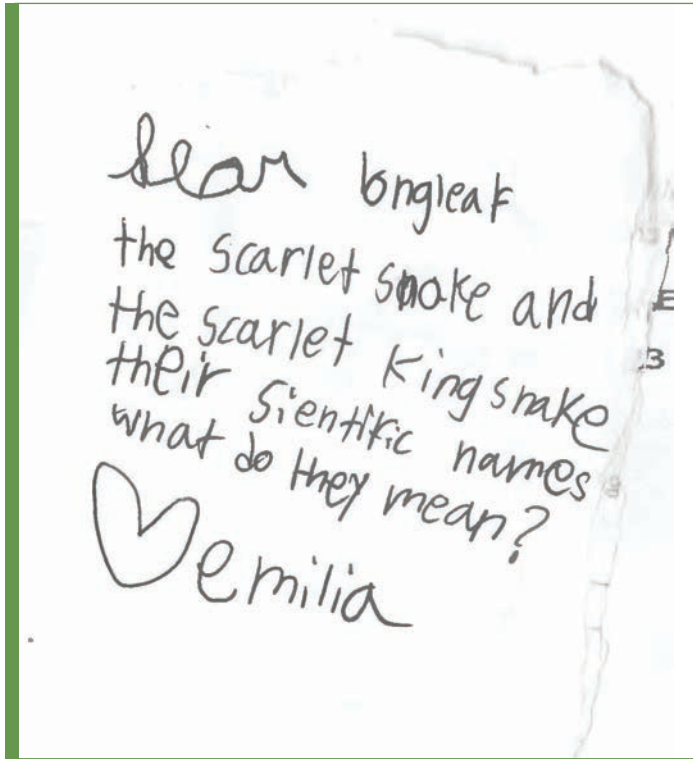 Dear longleaf
the scarlet snake and
the scarlet Kingsnake
their sientific names
what do they mean?
emilia
3